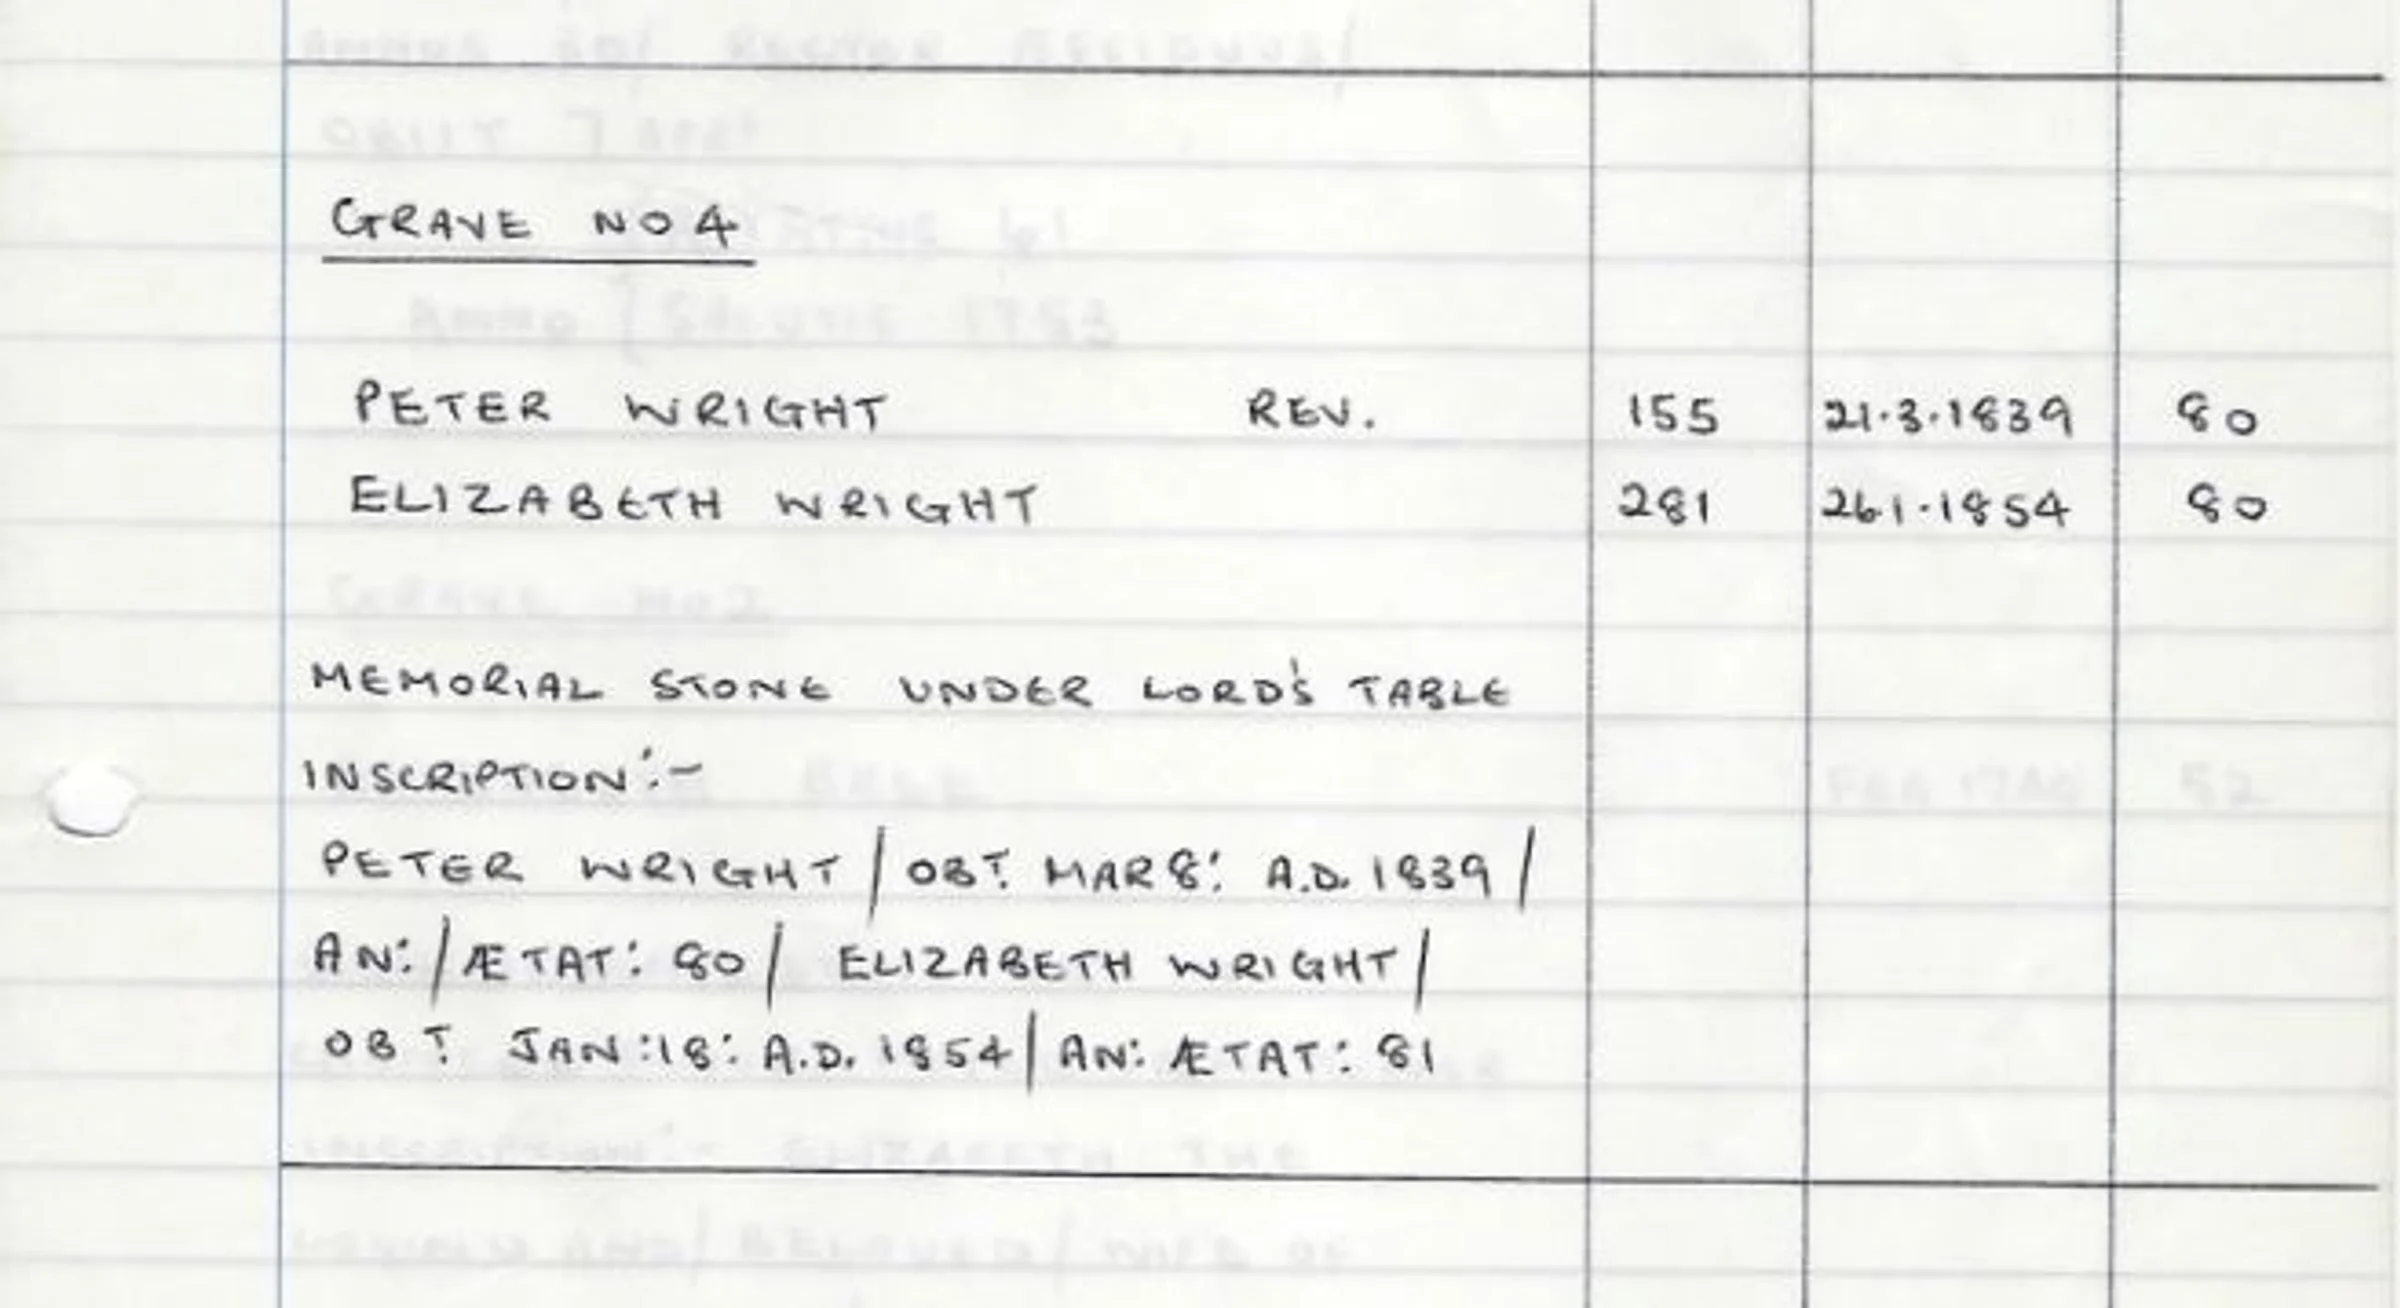 GRAVE NO 4
PETER WRIGHT REV. 155 21.3.1839 80
ELIZABETH WRIGHT 281 26.1.1854 80
MEMORIAL STONE UNDER LORD'S TABLE
INSCRIPTION:-
PETER WRIGHT / OBT. MAR 8: A.D. 1839 /
AN: / ÆTAT: 80 / ELIZABETH WRIGHT /
OBT. JAN:18: A.D. 1854 / AN: ÆTAT: 81